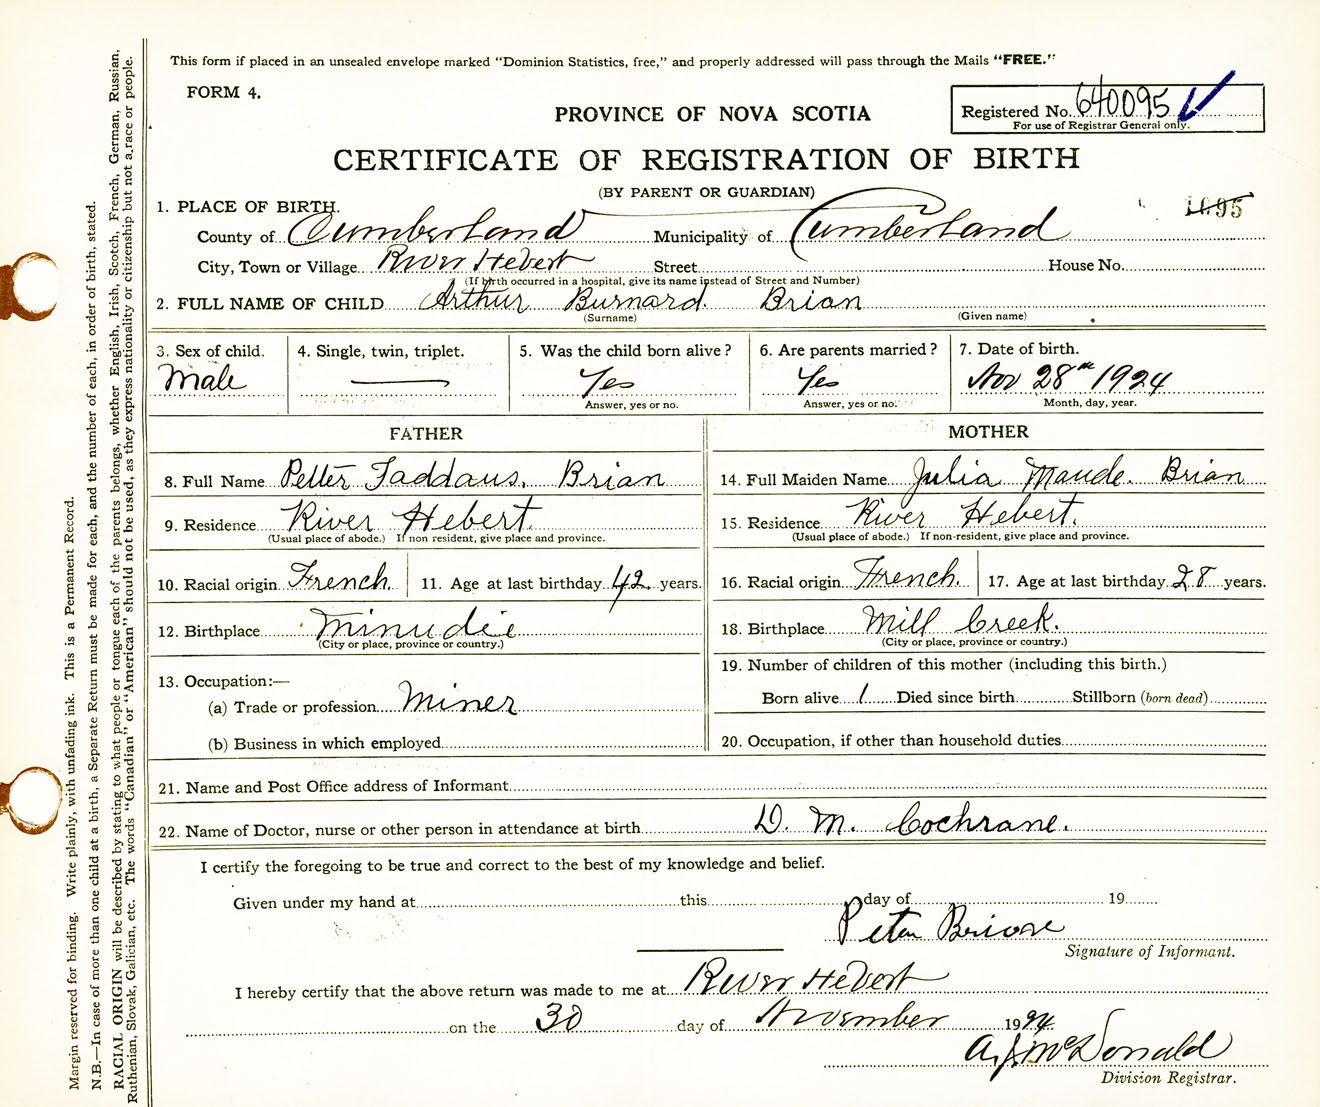 This form if placed in an unsealed envelope marked "Dominion Statistics, free," and properly addressed will pass through the Mails "FREE."
FORM 4.
PROVINCE OF NOVA SCOTIA
Registered No. 640095
For use of Registrar General only.
CERTIFICATE OF REGISTRATION OF BIRTH
(BY PARENT OR GUARDIAN)
1095
1. PLACE OF BIRTH.
County of Cumberland Municipality of Cumberland
City, Town or Village River Hebert Street House No.
(If birth occurred in a hospital, give its name instead of Street and Number)
2. FULL NAME OF CHILD Arthur Burnard. Brian
(Surname) (Given name)
3. Sex of child. 4. Single, twin, triplet. 5. Was the child born alive? 6. Are parents married? 7. Date of birth.
Male — Yes Yes Nov 28th 1924
Answer, yes or no. Answer, yes or no. Month, day, year.
FATHER
8. Full Name Petter Taddaus. Brian
9. Residence River Hebert.
(Usual place of abode.) If non resident, give place and province.
10. Racial origin French. 11. Age at last birthday 42 years.
12. Birthplace Minudie
(City or place, province or country.)
13. Occupation:—
(a) Trade or profession Miner
(b) Business in which employed
MOTHER
14. Full Maiden Name Julia Maude. Brian
15. Residence River Hebert.
(Usual place of abode.) If non-resident, give place and province.
16. Racial origin French. 17. Age at last birthday 28 years.
18. Birthplace Mill Creek.
(City or place, province or country.)
19. Number of children of this mother (including this birth.)
Born alive 1 Died since birth Stillborn (born dead)
20. Occupation, if other than household duties
21. Name and Post Office address of Informant
22. Name of Doctor, nurse or other person in attendance at birth D. M. Cochrane.
I certify the foregoing to be true and correct to the best of my knowledge and belief.
Given under my hand at this day of 19
Peter Brione
Signature of Informant.
I hereby certify that the above return was made to me at River Hebert
on the 30 day of November 1924
A. J. McDonald
Division Registrar.
Margin reserved for binding. Write plainly, with unfading ink. This is a Permanent Record.
N.B.—In case of more than one child at a birth, a Separate Return must be made for each, and the number of each, in order of birth, stated.
RACIAL ORIGIN will be described by stating to what people or tongue each of the parents belongs, whether English, Irish, Scotch, French, German, Russian,
Ruthenian, Slovak, Galician, etc. The words "Canadian" or "American" should not be used, as they express nationality or citizenship but not a race or people.